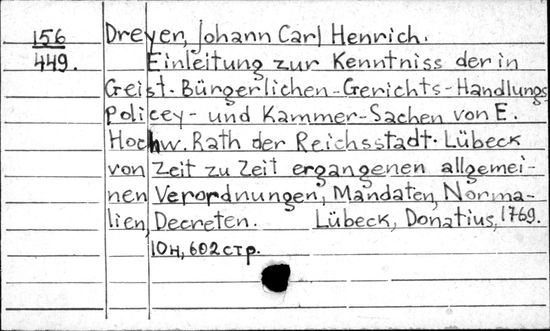 156 Dreyer, Johann Carl Henrich.
449. Einleitung zur Kenntniss der in
Geist-Bürgerlichen-Gerichts-Handlungs
Policey- und Kammer-Sachen von E.
Hochw. Rath der Reichsstadt. Lübeck
von Zeit zu Zeit ergangenen allgemei-
nen Verordnungen, Mandaten, Norma-
lien, Decreten. Lübeck, Donatius, 1769.
10н, 602 стр.